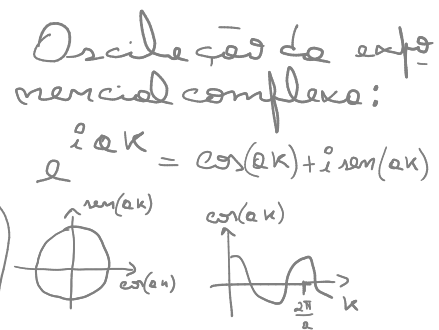 Oscilação da expo
nencial complexa:
e^{iak} = cos(ak) + i sen(ak)
sen(ak)
cos(ak)
cos(ak)
2π/a
k